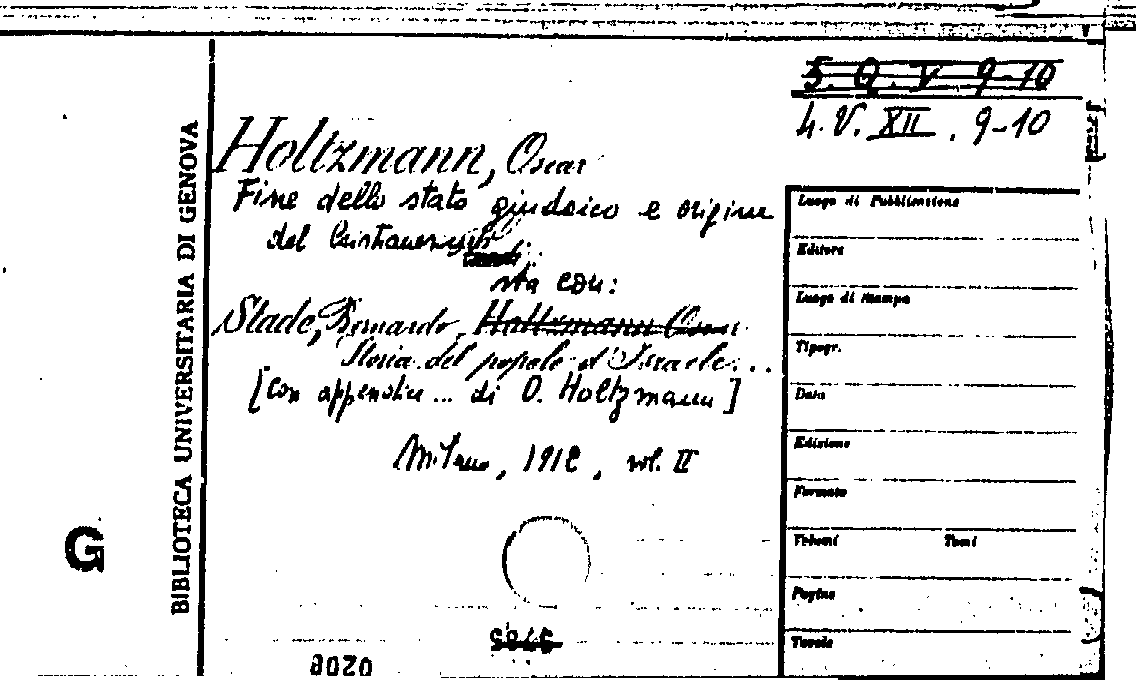 5. Q. V 9-10
4. V. XII . 9-10
Holtzmann, Oscar
Fine dello stato giudaico e origine
del Cristianesimo
sta con:
Stade, Bernardo, Holtzmann Oscar
Storia del popolo d'Israele...
[con appendice ... di O. Holtzmann]
Milano, 1912, vol. II
BIBLIOTECA UNIVERSITARIA DI GENOVA
G
Luogo di Pubblicazione
Editore
Luogo di stampa
Tipogr.
Data
Edizione
Formato
Volumi Tomi
Pagine
Tavole
0206